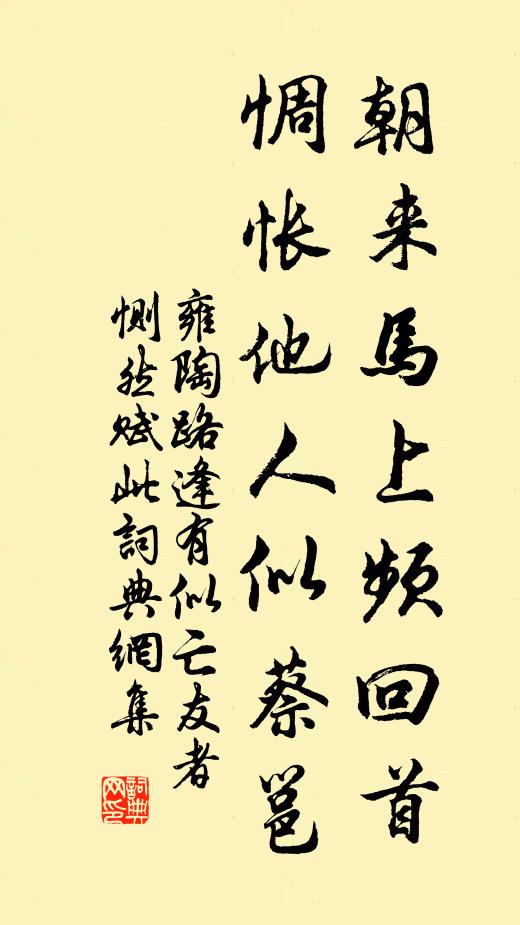 朝来馬上頻回首
惆怅他人似蔡邕
雍陶路逢有似亡友者
恻然赋此詞典網集
詞典网印